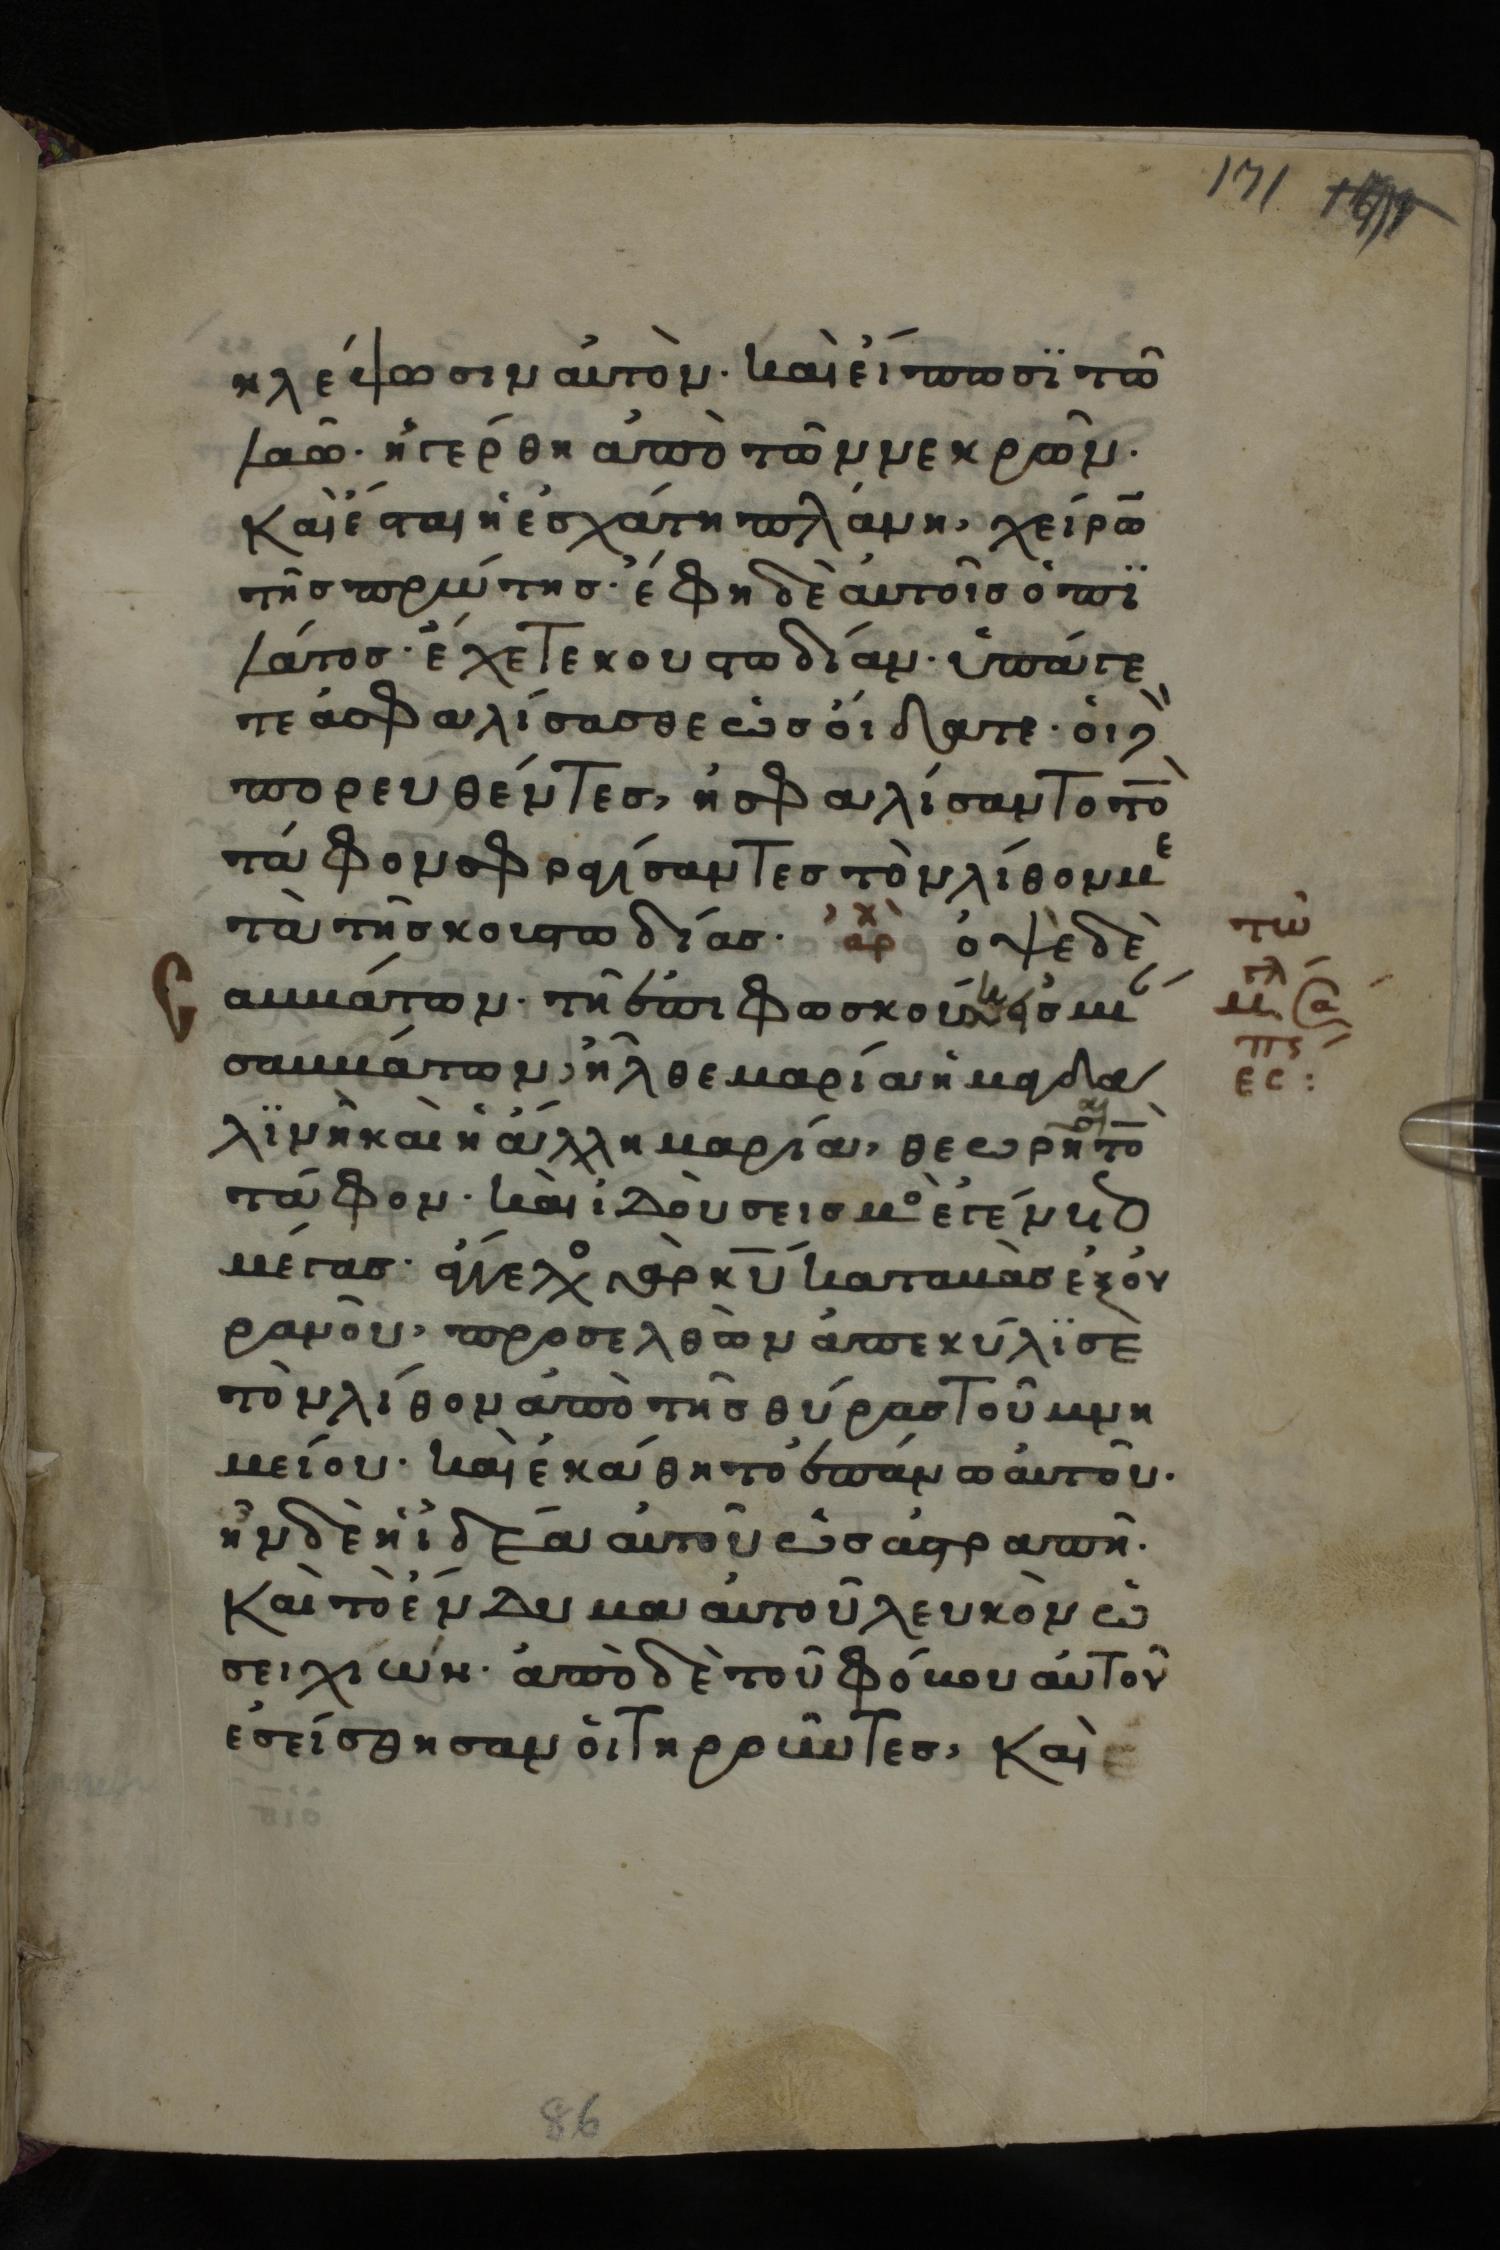 171
κλέψωσιν αὐτὸν· καὶ εἴπωσϊ τῶ
λαῶ· ἠγέρθη ἀπὸ τῶν νεκρῶν·
Καὶ ἔσται ἡ ἐσχάτη πλάνη, χείρω̄
τῆς πρώτης· ἔφη δὲ αὐτοῖς ὁ πϊ
λάτος· ἔχετε κουστωδίαν· ὑπάγε
τε ἀσφαλίσασθε ὡς οἴδατε· οἱ δὲ
πορευθέντες, ἠσφαλίσαντο τὸ̄
τάφον σφραγίσαντες τὸν λίθον με
τὰ τῆς κουστωδίας· ἀρχ ὀψὲ δὲ
σαββάτων· τῆ ἐπιφωσκούσ
σαββάτων, ἦλθε μαρία ἡ μαγδα
λϊνὴ καὶ ἡ ἄλλη μαρία, θεωρῆσαι τὸ̄
τάφον· καὶ ἰδοὺ σεισμὸ ἐγένετο
μέγας· ἄγγελο γὰρ κῡ καταβὰς ἐξ οὐ
ρανοῦ, προσελθὼν ἀπεκύλϊσε
τὸν λίθον ἀπὸ τῆς θύρας τοῦ μνη
μείου· καὶ ἐκάθητο ἐπάνω αὐτοῦ·
ἦν δὲ ἡ ἰδέα αὐτοῦ ὡς ἀστραπή·
Καὶ τὸ ἔνδυμα αὐτοῦ λευκὸν ὡ
σει χιών· ἀπὸ δὲ τοῦ φόβου αὐτοῦ
ἐσείσθησαν οἱ τηροῦντες, Καὶ
τῶ
ες:
86